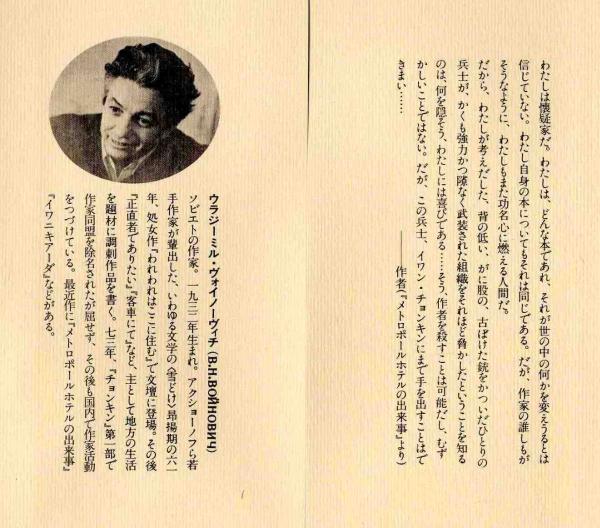 わたしは懐疑家だ。わたしは、どんな本であれ、それが世の中の何かを変えうるとは
信じていない。わたし自身の本についてもそれは同じである。だが、作家の誰しもが
そうなように、わたしもまた功名心に燃える人間だ。
だから、わたしが考えだした、背の低い、がに股の、古ぼけた銃をかついだひとりの
兵士が、かくも強力かつ隙なく武装された組織をそれほど脅かしたということを知る
のは、何を隠そう、わたしには喜びである……そう、作者を殺すことは可能だし、むず
かしいことではない。だが、この兵士、イワン・チョンキンにまで手を出すことはで
きまい……
――作者『メトロポールホテルの出来事』より)
ウラジーミル・ヴォイノーヴィチ (В.Н.ВОЙНОВИЧ)
ソビエトの作家。一九三二年生まれ。アクショーノフら若
手作家が輩出した、いわゆる文学の〈雪どけ〉昂揚期の六一
年、処女作『われわれはここに住む』で文壇に登場。その後
『正直者でありたい』『客車にて』など、主として地方の生活
を題材に諷刺作品を書く。七三年、『チョンキン』第一部で
作家同盟を除名されたが屈せず、その後も国内で作家活動
をつづけている。最近作に『メトロポールホテルの出来事』
『イワニキアーダ』などがある。